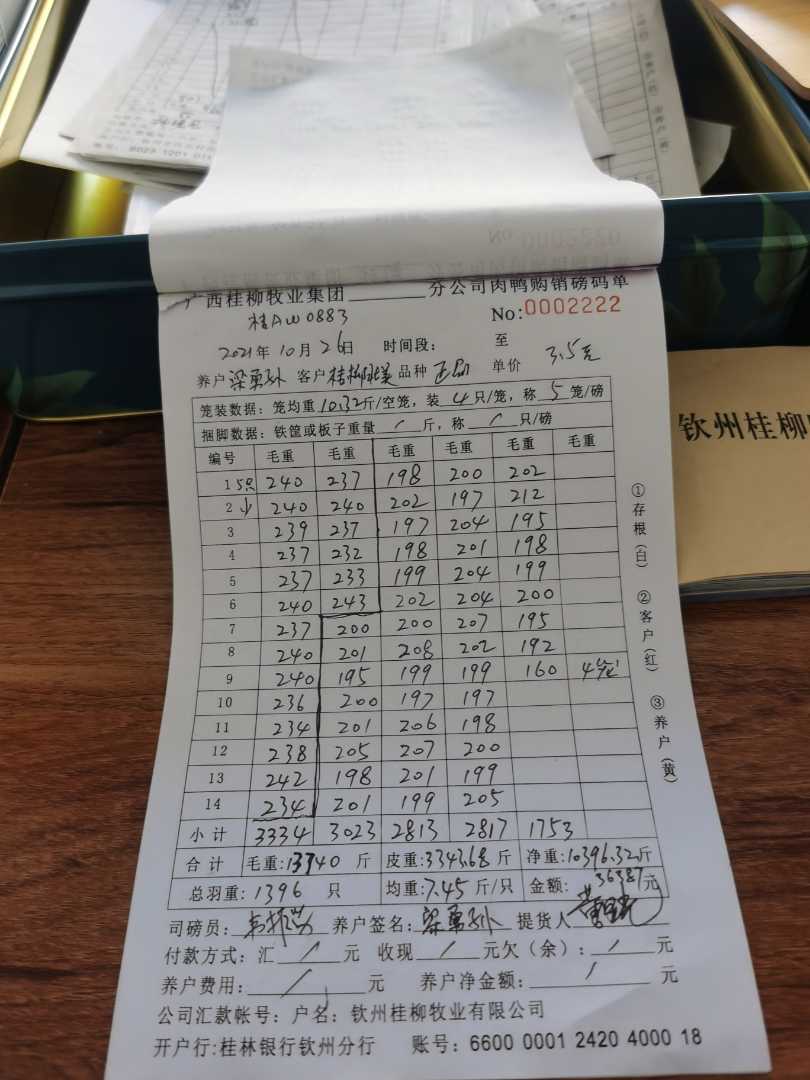 No 0002220
广西桂柳牧业集团______分公司肉鸭购销磅码单
桂AW0883 No:0002222
2021年10月26日 时间段: 至
养户梁勇孙 客户桂柳 品种正品 单价 3.5元
笼装数据: 笼均重10.32斤/空笼, 装4只/笼, 称5笼/磅
捆脚数据: 铁筐或板子重量 / 斤, 称 / 只/磅
编号 毛重 毛重 毛重 毛重 毛重 毛重
1 5只 240 237 198 200 202
2 240 240 202 197 212
3 239 237 197 204 195
4 237 232 198 201 198
5 237 233 199 204 199
6 240 243 202 204 200
7 237 200 200 207 195
8 240 201 208 202 192
9 240 195 199 199 160 4笼
10 236 200 197 197
11 234 201 206 198
12 238 205 207 200
13 242 198 201 199
14 234 201 199 205
小计 3334 3023 2813 2817 1753
合计 毛重:13740 斤 皮重:3343.68 斤 净重:10396.32斤
总羽重: 1396 只 均重:7.45 斤/只 金额: 36387元
司磅员: 养户签名: 梁勇孙 提货人
付款方式: 汇 / 元 收现 / 元欠(余): / 元
养户费用: / 元 养户净金额: / 元
公司汇款帐号: 户名: 钦州桂柳牧业有限公司
开户行:桂林银行钦州分行 账号: 6600 0001 2420 4000 18
①存根(白) ②客户(红) ③养户(黄)
钦州桂柳